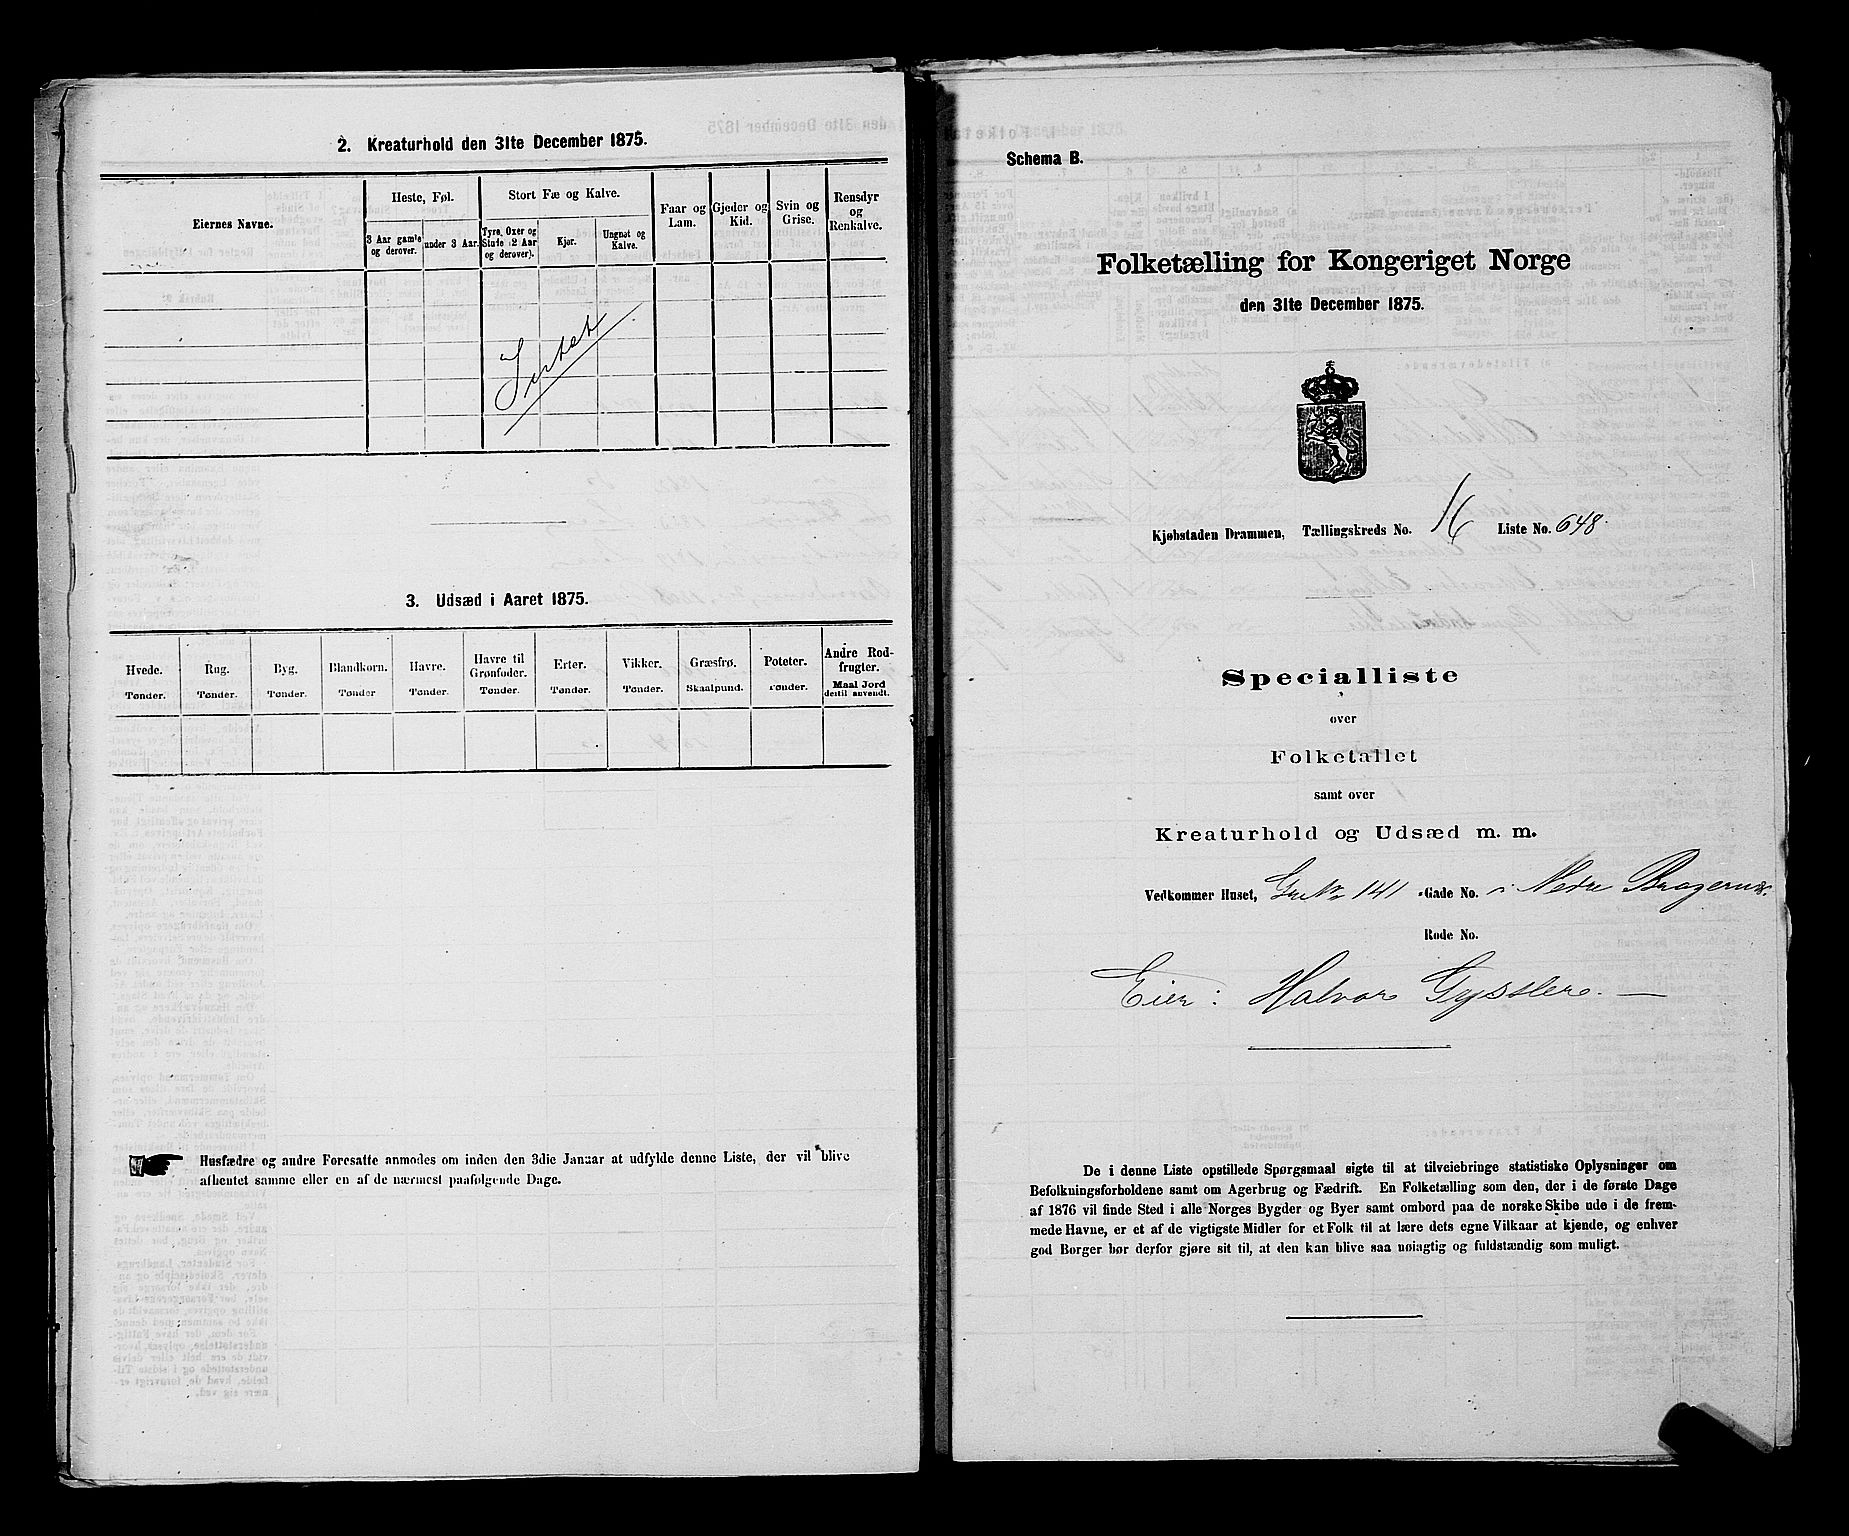 2. Kreaturhold den 31te December 1875.
Eiernes Navne.
Heste, Føl.
3 Aar gamle og derover.
under 3 Aar.
Stort Fæ og Kalve.
Tyre, Oxer og Stude (2 Aar og derover).
Kjør.
Ungnøt og Kalve.
Faar og Lam.
Gjeder og Kid.
Svin og Grise.
Rensdyr og Renkalve.
Intet
3. Udsæd i Aaret 1875.
Hvede. Tønder.
Rug. Tønder.
Byg. Tønder.
Blandkorn. Tønder
Havre. Tønder.
Havre til Grønfoder. Tønder.
Erter. Tønder.
Vikker. Tønder.
Græsfrø. Skaalpund.
Poteter. Tønder.
Andre Rodfrugter. Maal Jord dertil anvendt.
Husfædre og andre Foresatte anmodes om inden den 3die Januar at udfylde denne Liste, der vil blive
afhentet samme eller en af de nærmest paafølgende Dage.
Schema B.
Folketælling for Kongeriget Norge
den 31te December 1875.
Kjøbstaden Drammen, Tællingskreds No. 16 Liste No. 648.
Specialliste
over
Folketallet
samt over
Kreaturhold og Udsæd m. m.
Vedkommer Huset, Gr No 141 -Gade No. i Nedre Bragernæs.
Rode No.
Eier: Halvor Gyssler. —
De i denne Liste opstillede Spørgsmaal sigte til at tilveiebringe statistiske Oplysninger om
Befolkningsforholdene samt om Agerbrug og Fædrift. En Folketælling som den, der i de første Dage
af 1876 vil finde Sted i alle Norges Bygder og Byer samt ombord paa de norske Skibe ude i de frem-
mede Havne, er et af de vigtigste Midler for et Folk til at lære dets egne Vilkaar at kjende, og enhver
god Borger bør derfor gjøre sit til, at den kan blive saa nøiagtig og fuldstændig som muligt.